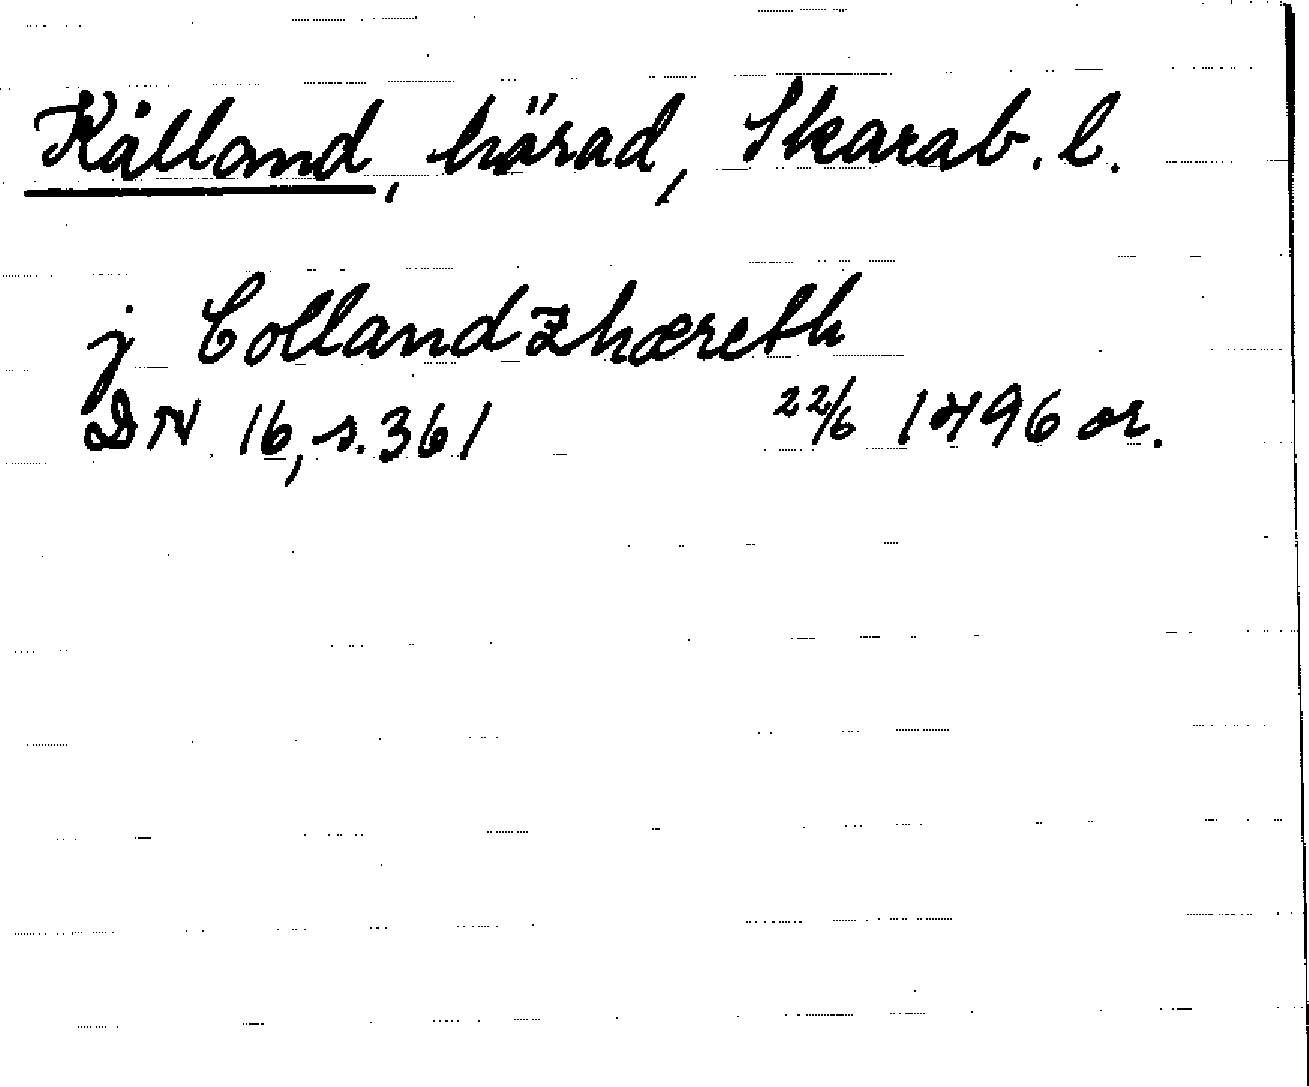 Kålland, härad, Skarab. l.
j Collandzhæreth
DN 16, s. 361 22/6 1496 or.